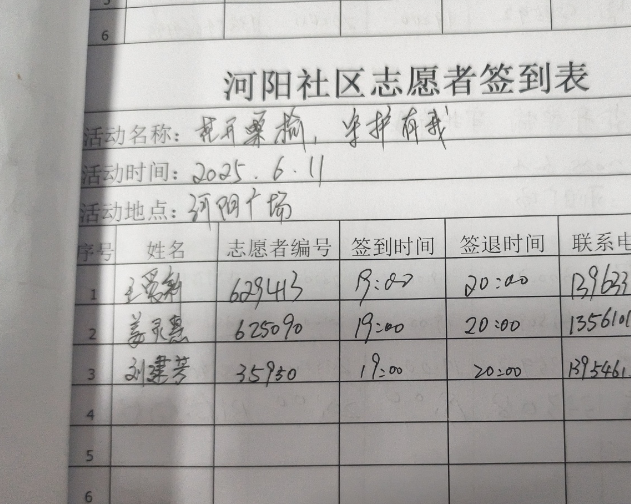 5
6
河阳社区志愿者签到表
活动名称：花开桑榆，守护有我
活动时间：2025.6.11
活动地点：河阳广场
序号 姓名 志愿者编号 签到时间 签退时间 联系电
1 629413 19:00 20:00 139633
2 姜灵惠 625090 19:00 20:00 1356101
3 刘建芳 35950 19:00 20:00 1395461
4
5
6